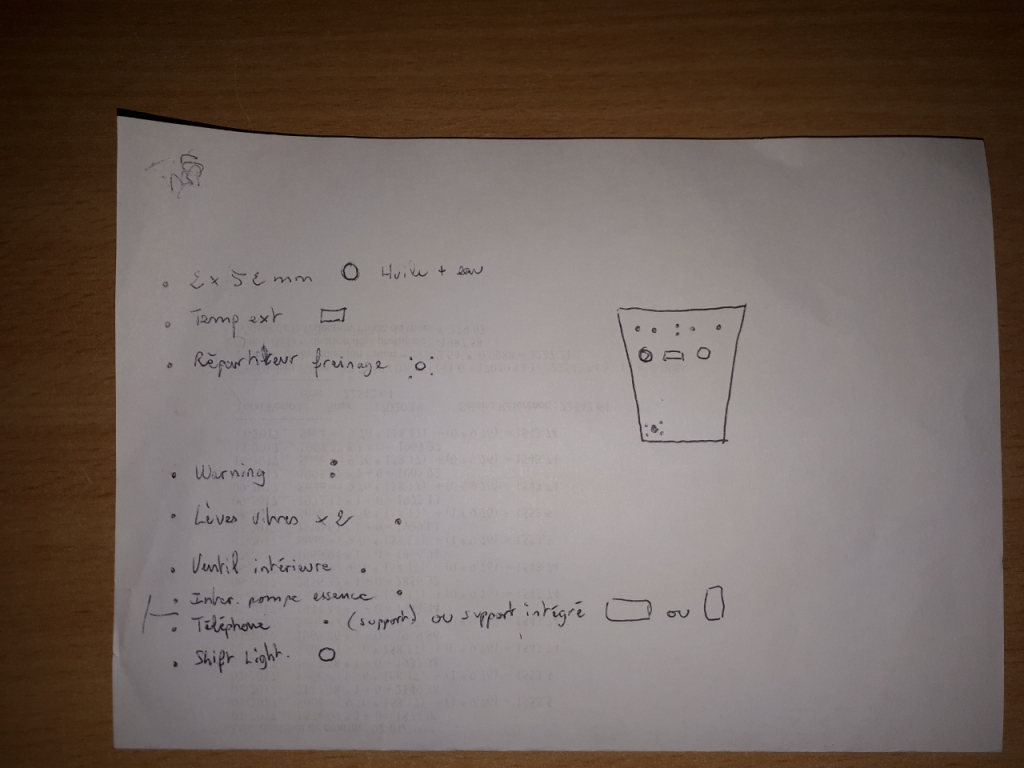 • 2 x 52 mm O Huile + eau
• Temp ext
• Répartiteur freinage
• Warning :
• Lèves vitres x 2 •
• Ventil intérieure •
• Inter. pompe essence •
• Téléphone • (support) ou support intégré ou
• Shift Light. O